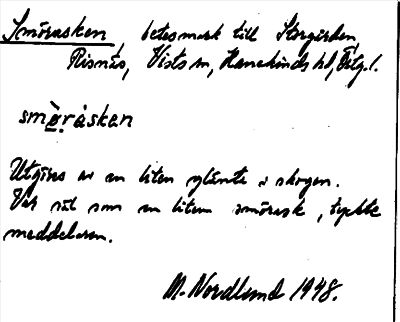 Smörasken, betesmark till Storgården,
Risnäs, Vists sn, Hanekinds hd, Östg.l.
smö̀ràskan
Utgöres av en liten glänta i skogen.
Var rät som en liten smörask, tyckte
meddelaren.
M. Nordlund 1948.